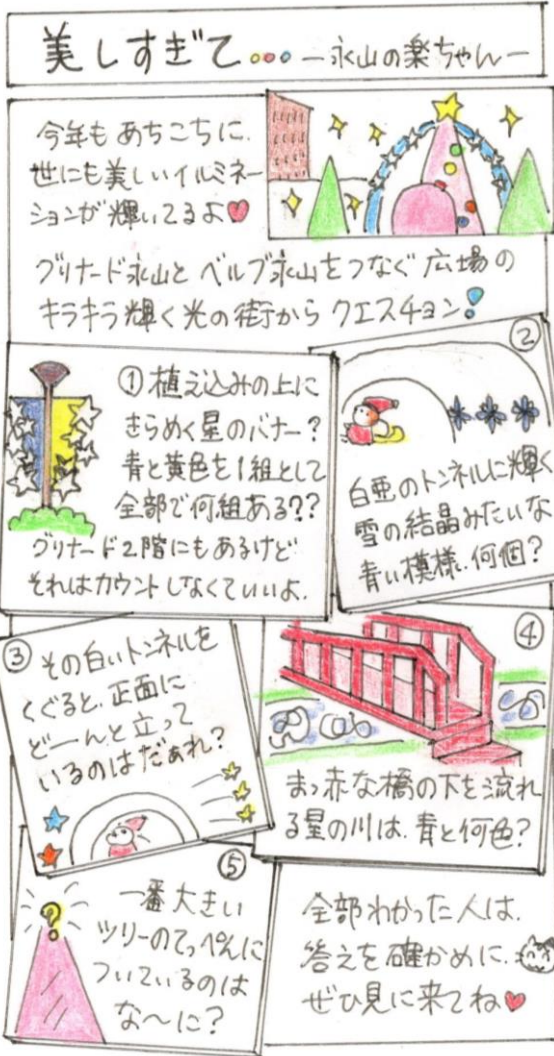 美しすぎて… ―永山の楽ちゃん―
今年もあちこちに.
世にも美しいイルミネー
ションが輝いてるよ♥
グリナード永山とベルブ永山をつなぐ広場の
キラキラ輝く光の街からクエスチョン!
①植え込みの上に
きらめく星のバナー?
青と黄色を1組として
全部で何組ある??
グリナード2階にもあるけど
それはカウントしなくていいよ.
②
白亜のトンネルに輝く
雪の結晶みたいな
青い模様.何個?
③その白いトンネルを
くぐると.正面に
どーんと立って
いるのはだぁれ?
④
まっ赤な橋の下を流れ
る星の川は.青と何色?
⑤
?
一番大きい
ツリーのてっぺんに
ついているのは
な〜に?
全部わかった人は.
答えを確かめに.
ぜひ見に来てね♥